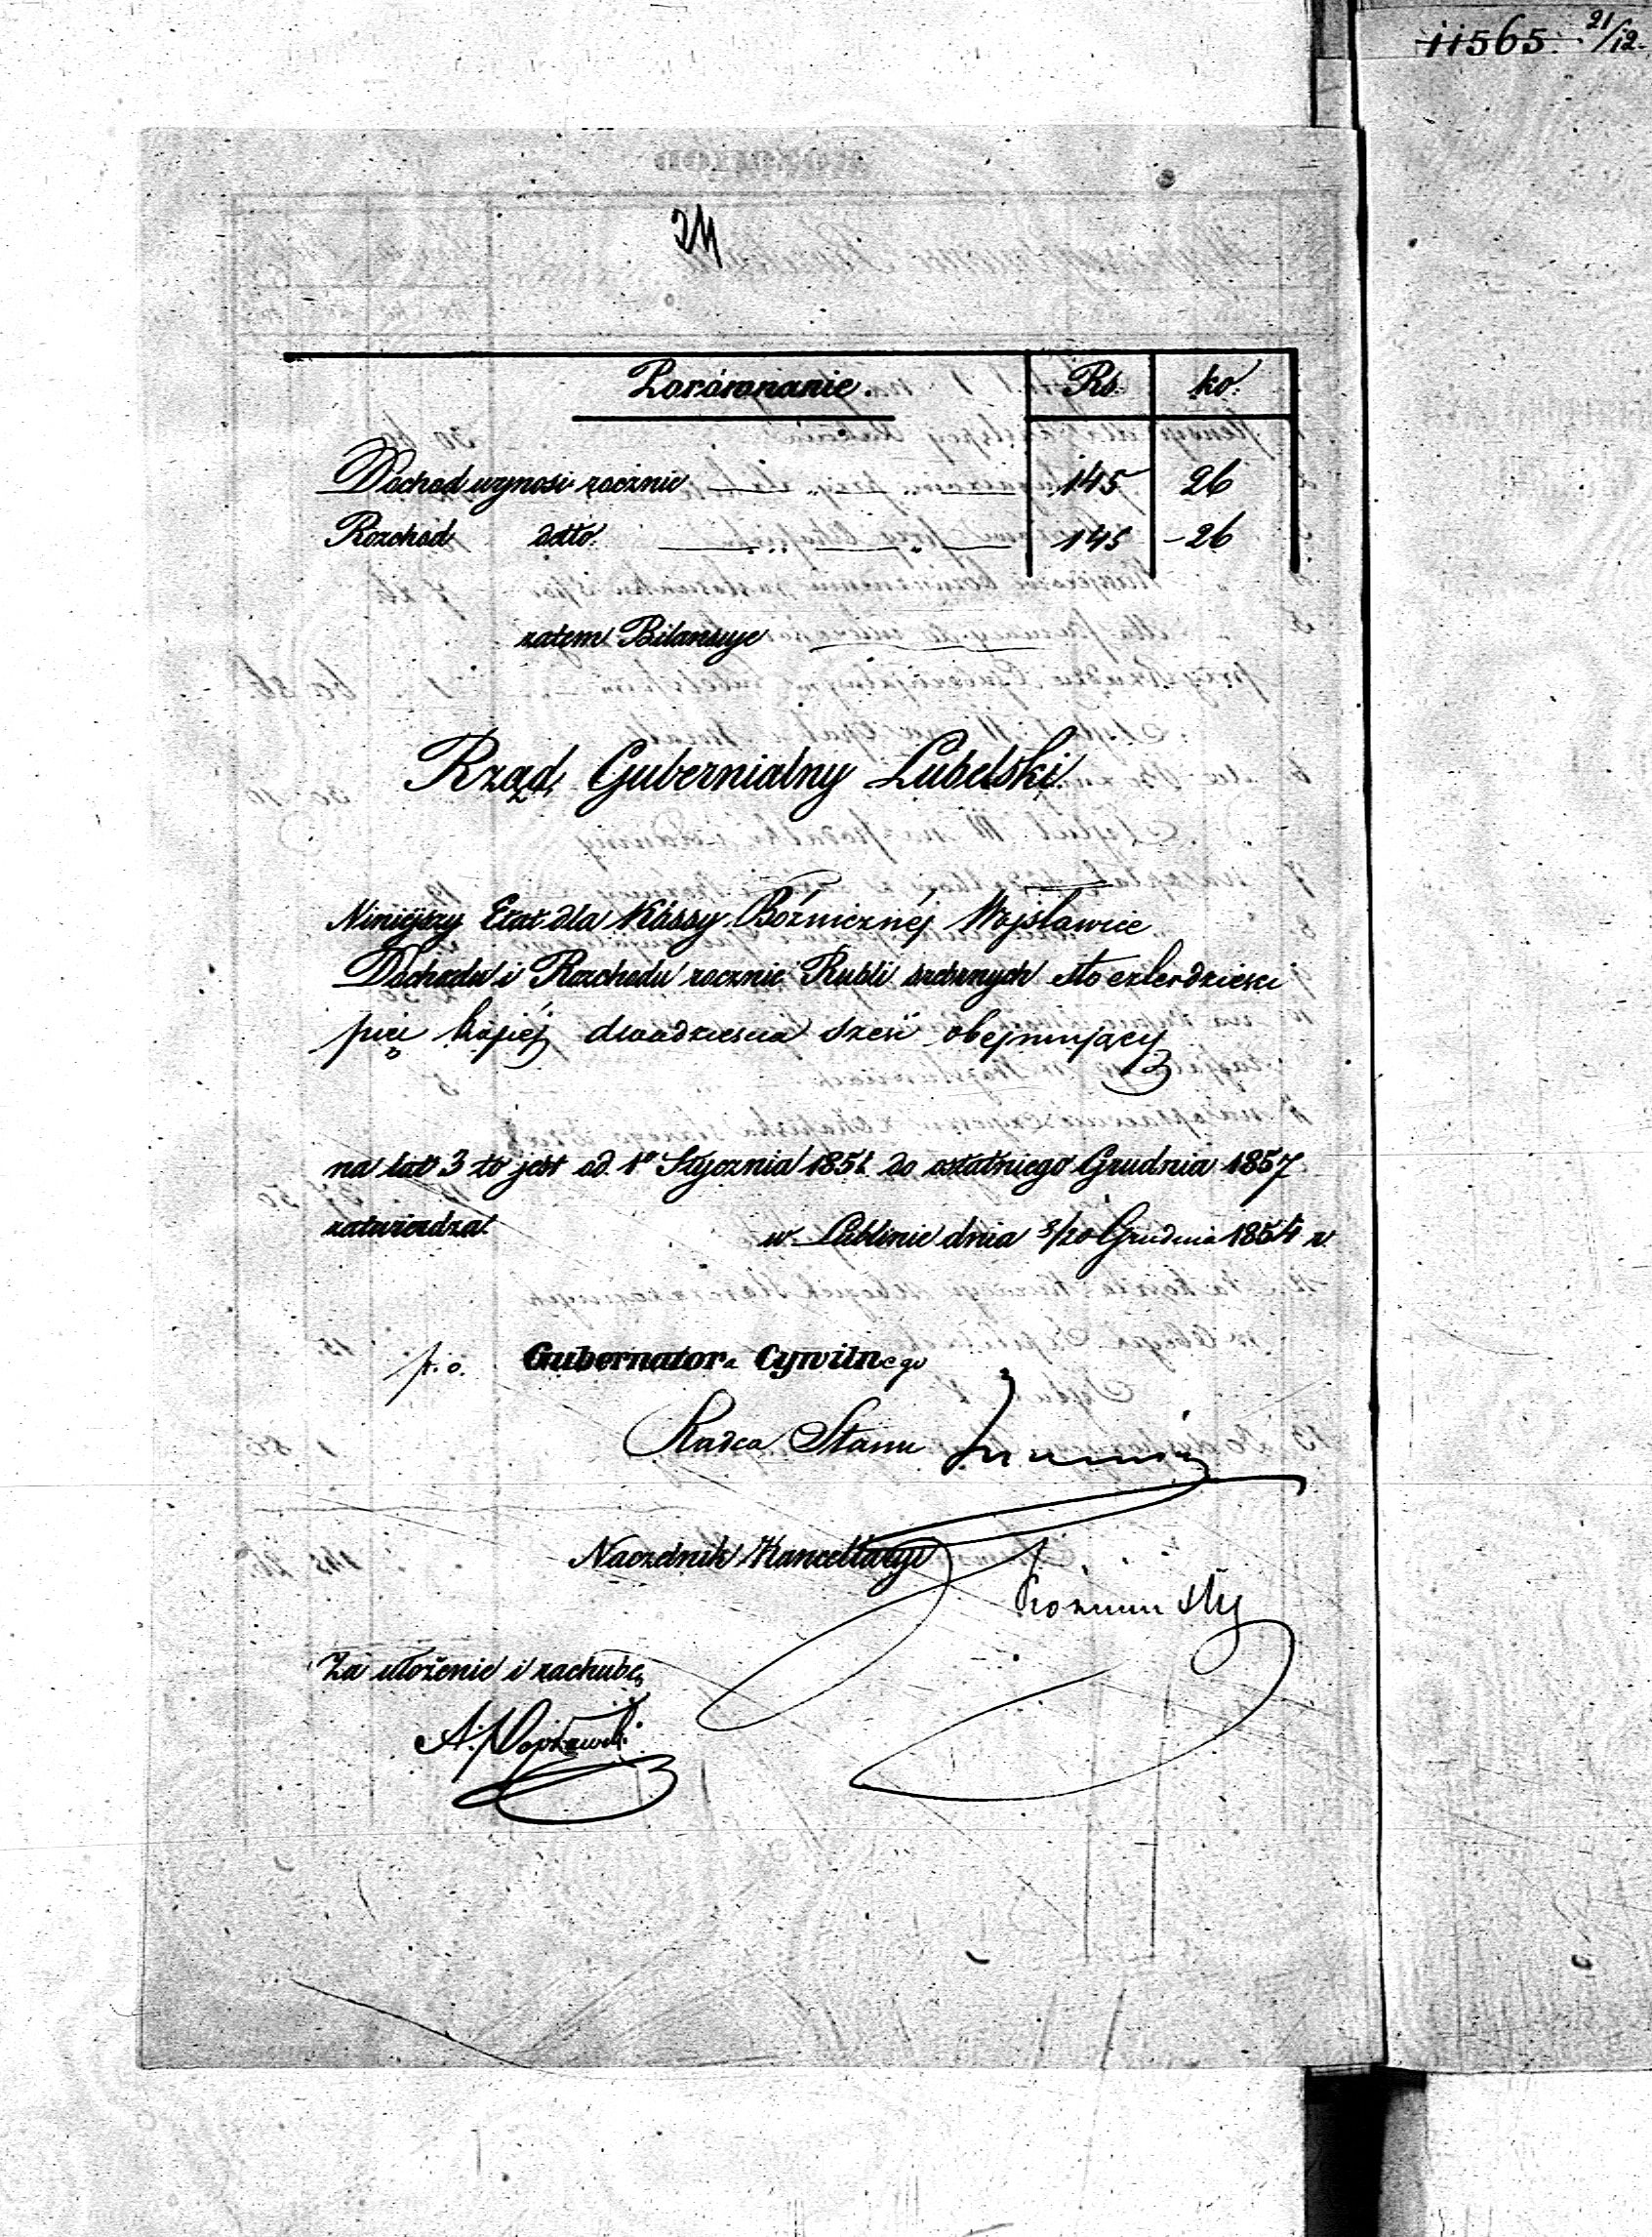 11565. 21/12.
24
Porównanie. Rs. ko.
Dochod wynosi rocznie 145 26
Rozchod detto 145 - 26
zatem Bilansuje
Rząd Gubernialny Lubelski
Niniejszy Etat dla Kassy Bóżnicznéj Wojsławice
Dochodu i Rozchodu rocznie Rubli srebrnych sto czterdzieści
pięć kopiéj dwadzieścia sześć obejmujący
na lat 3 to jest od 1o Stycznia 185 do ostatniego Grudnia 1857
zatwierdza w Lublinie dnia 8/20 Grudnia 1854 r.
p. o. Gubernatora Cywilnego
Radca Stanu
Naczelnik Kancellaryi
Za ułożenie i rachubę
A.